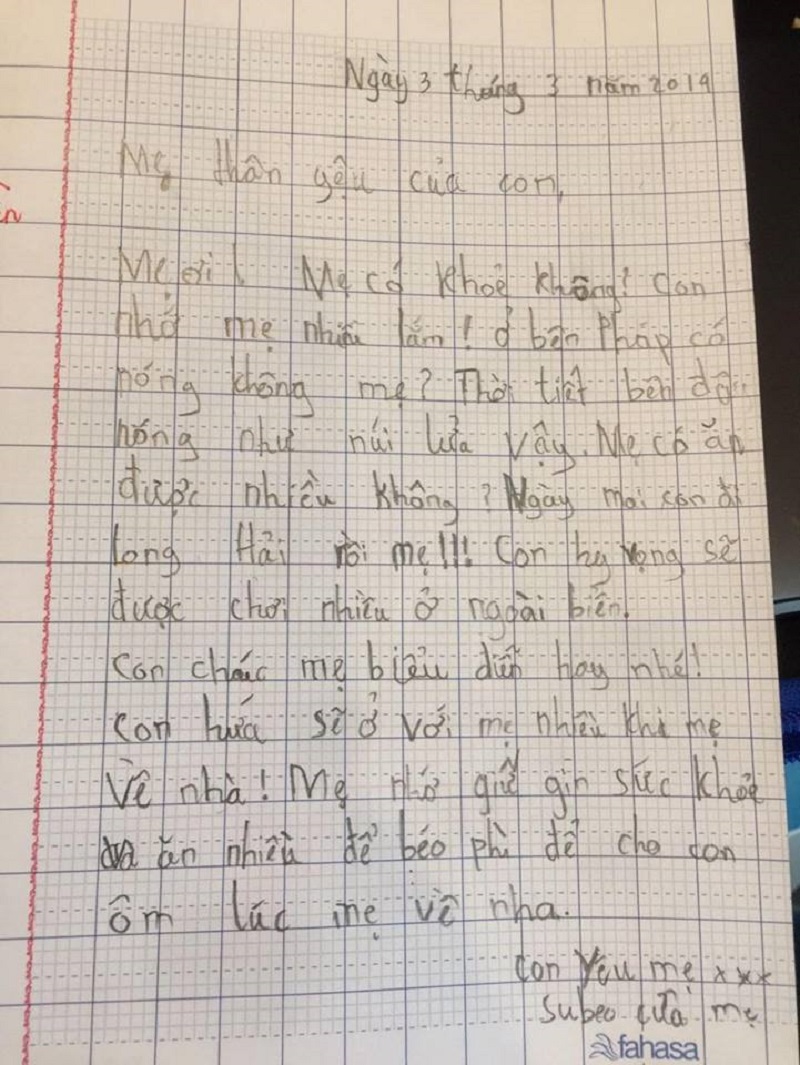 Ngày 3 tháng 3 năm 2019
Mẹ thân yêu của con,
Mẹ ơi! Mẹ có khoẻ không! Con
nhớ mẹ nhiều lắm! ở bên Pháp có
nóng không mẹ? Thời tiết bên đây
nóng như núi lửa vậy. Mẹ có ăn
được nhiều không? Ngày mai con đi
long Hải rồi mẹ!!! Con hy vọng sẽ
được chơi nhiều ở ngoài biển.
Con chúc mẹ biểu diễn hay nhé!
Con hứa sẽ ở với mẹ nhiều khi mẹ
Về nhà! Mẹ nhớ giữ gìn sức khoẻ
và ăn nhiều để béo phì để cho con
ôm lúc mẹ về nha.
Con yêu mẹ xxx
subeo của mẹ
fahasa